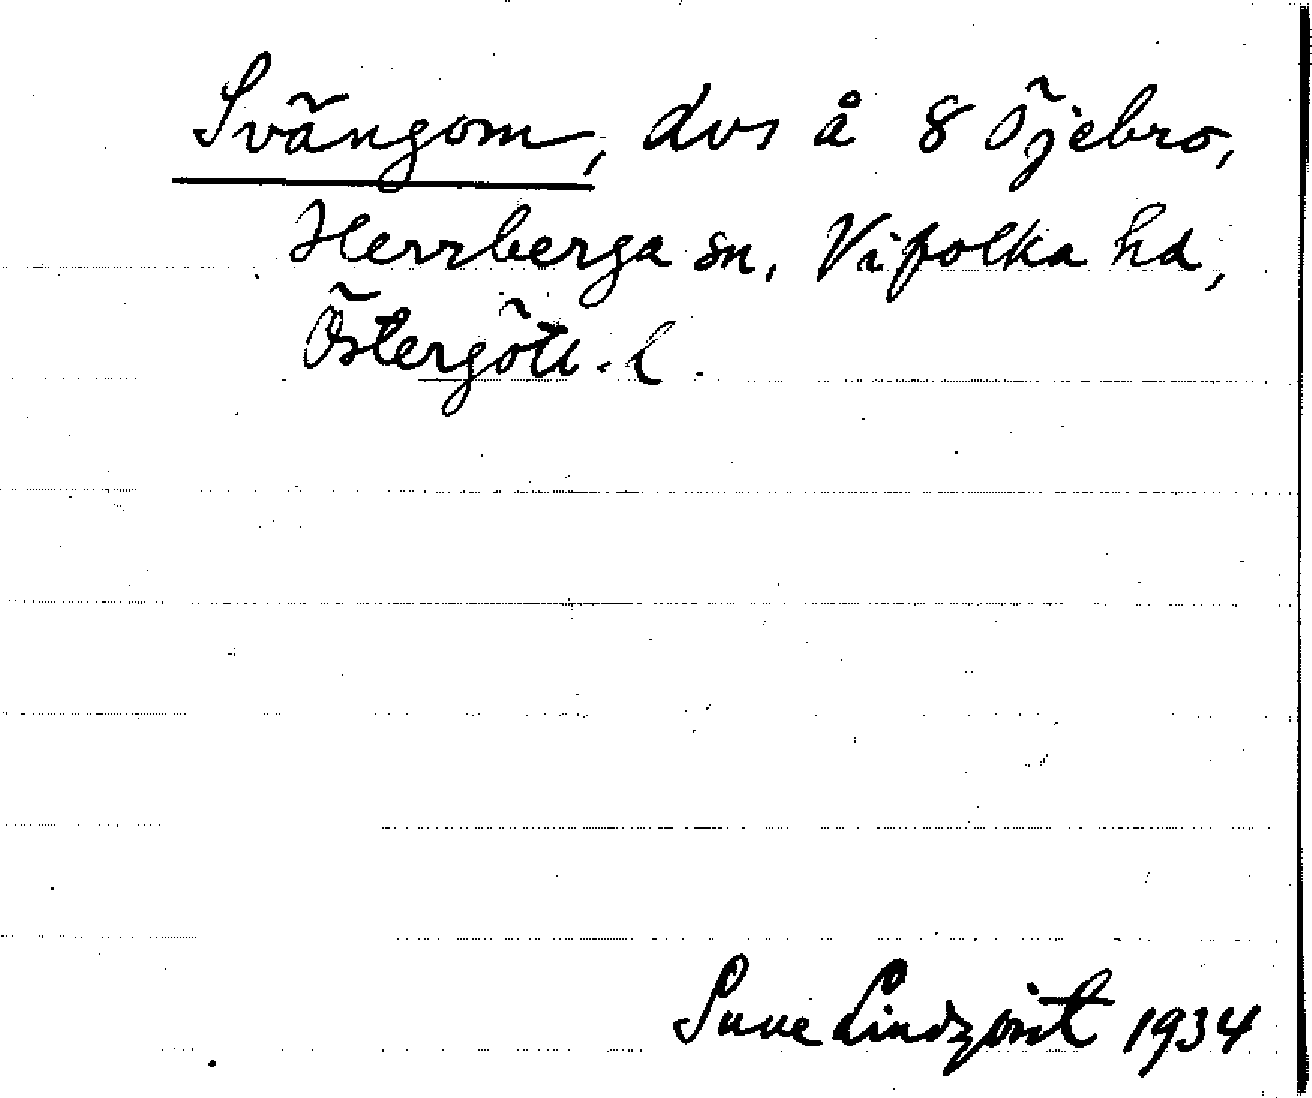 Svängom, dvs å 8 Öjebro,
Herrberga sn, Vifolka hd,
Östergötl. l.
Sune Lindqvist 1934